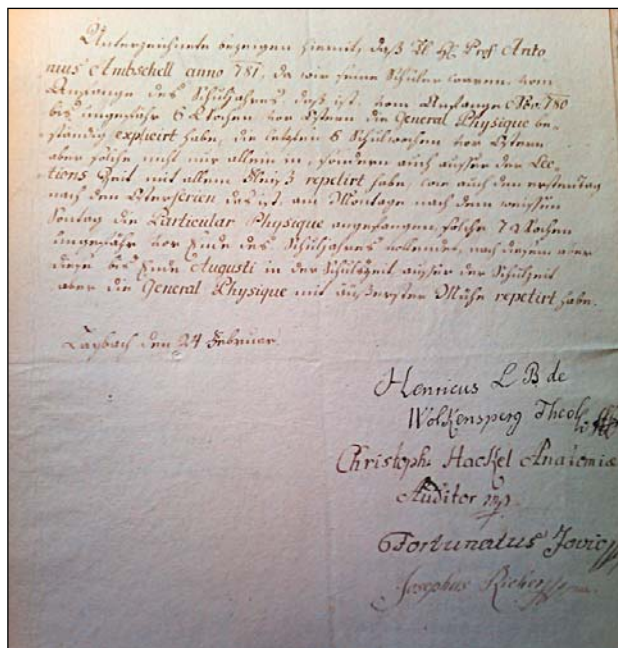 Unterzeichnete bezeigen hiemit, daß Tl. H. Prof. Anto
nius Ambschell anno 781, da wir seine Schüler waren, vom
Anfange des Schuljahres, daß ist, vom Anfange 9br. 780
bis ungefähr 6 Wochen vor Ostern die General Physique be-
ständig explicirt habe, die letzten 6 Schulwochen vor Ostern
aber solche nicht nur allein in, sondern auch ausser der Lec-
tions Zeit mit allem Fleiß repetirt habe, wie auch den erstentag
nach den Osterferien das ist, am Montage nach dem weissen
Sontag die Particular Physique angefangen, solche 7 Wochen
ungefähr vor Ende des Schuljahres vollendet, nach diesem aber
diese bis Ende Augusti in der Schulzeit ausser der Schulzeit
aber die General Physique mit äußerster Mühe repetirt habe.
Laybach den 24 Februar.
Henricus L. B. de
Wolkensperg Theol
Christoph. Hackel Anatomiæ
Auditor mp
Fortunatus Jovic
Josephus Richer